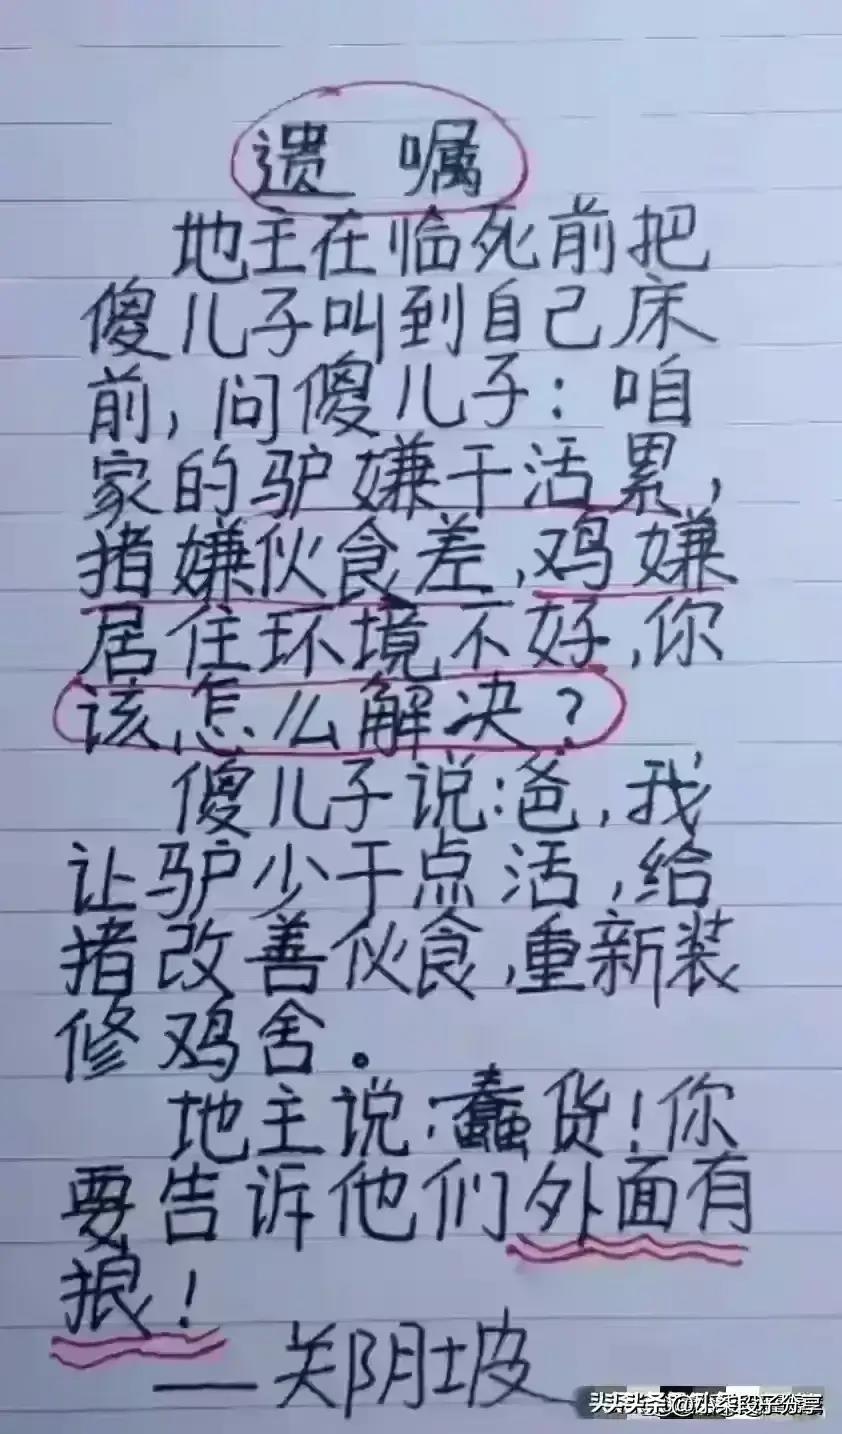 遗嘱
地主在临死前把
傻儿子叫到自己床
前,问傻儿子:咱
家的驴嫌干活累,
猪嫌伙食差,鸡嫌
居住环境不好,你
该怎么解决?
傻儿子说:爸,我
让驴少干点活,给
猪改善伙食,重新装
修鸡舍。
地主说:蠢货!你
要告诉他们外面有
狼!
——郑阴坡